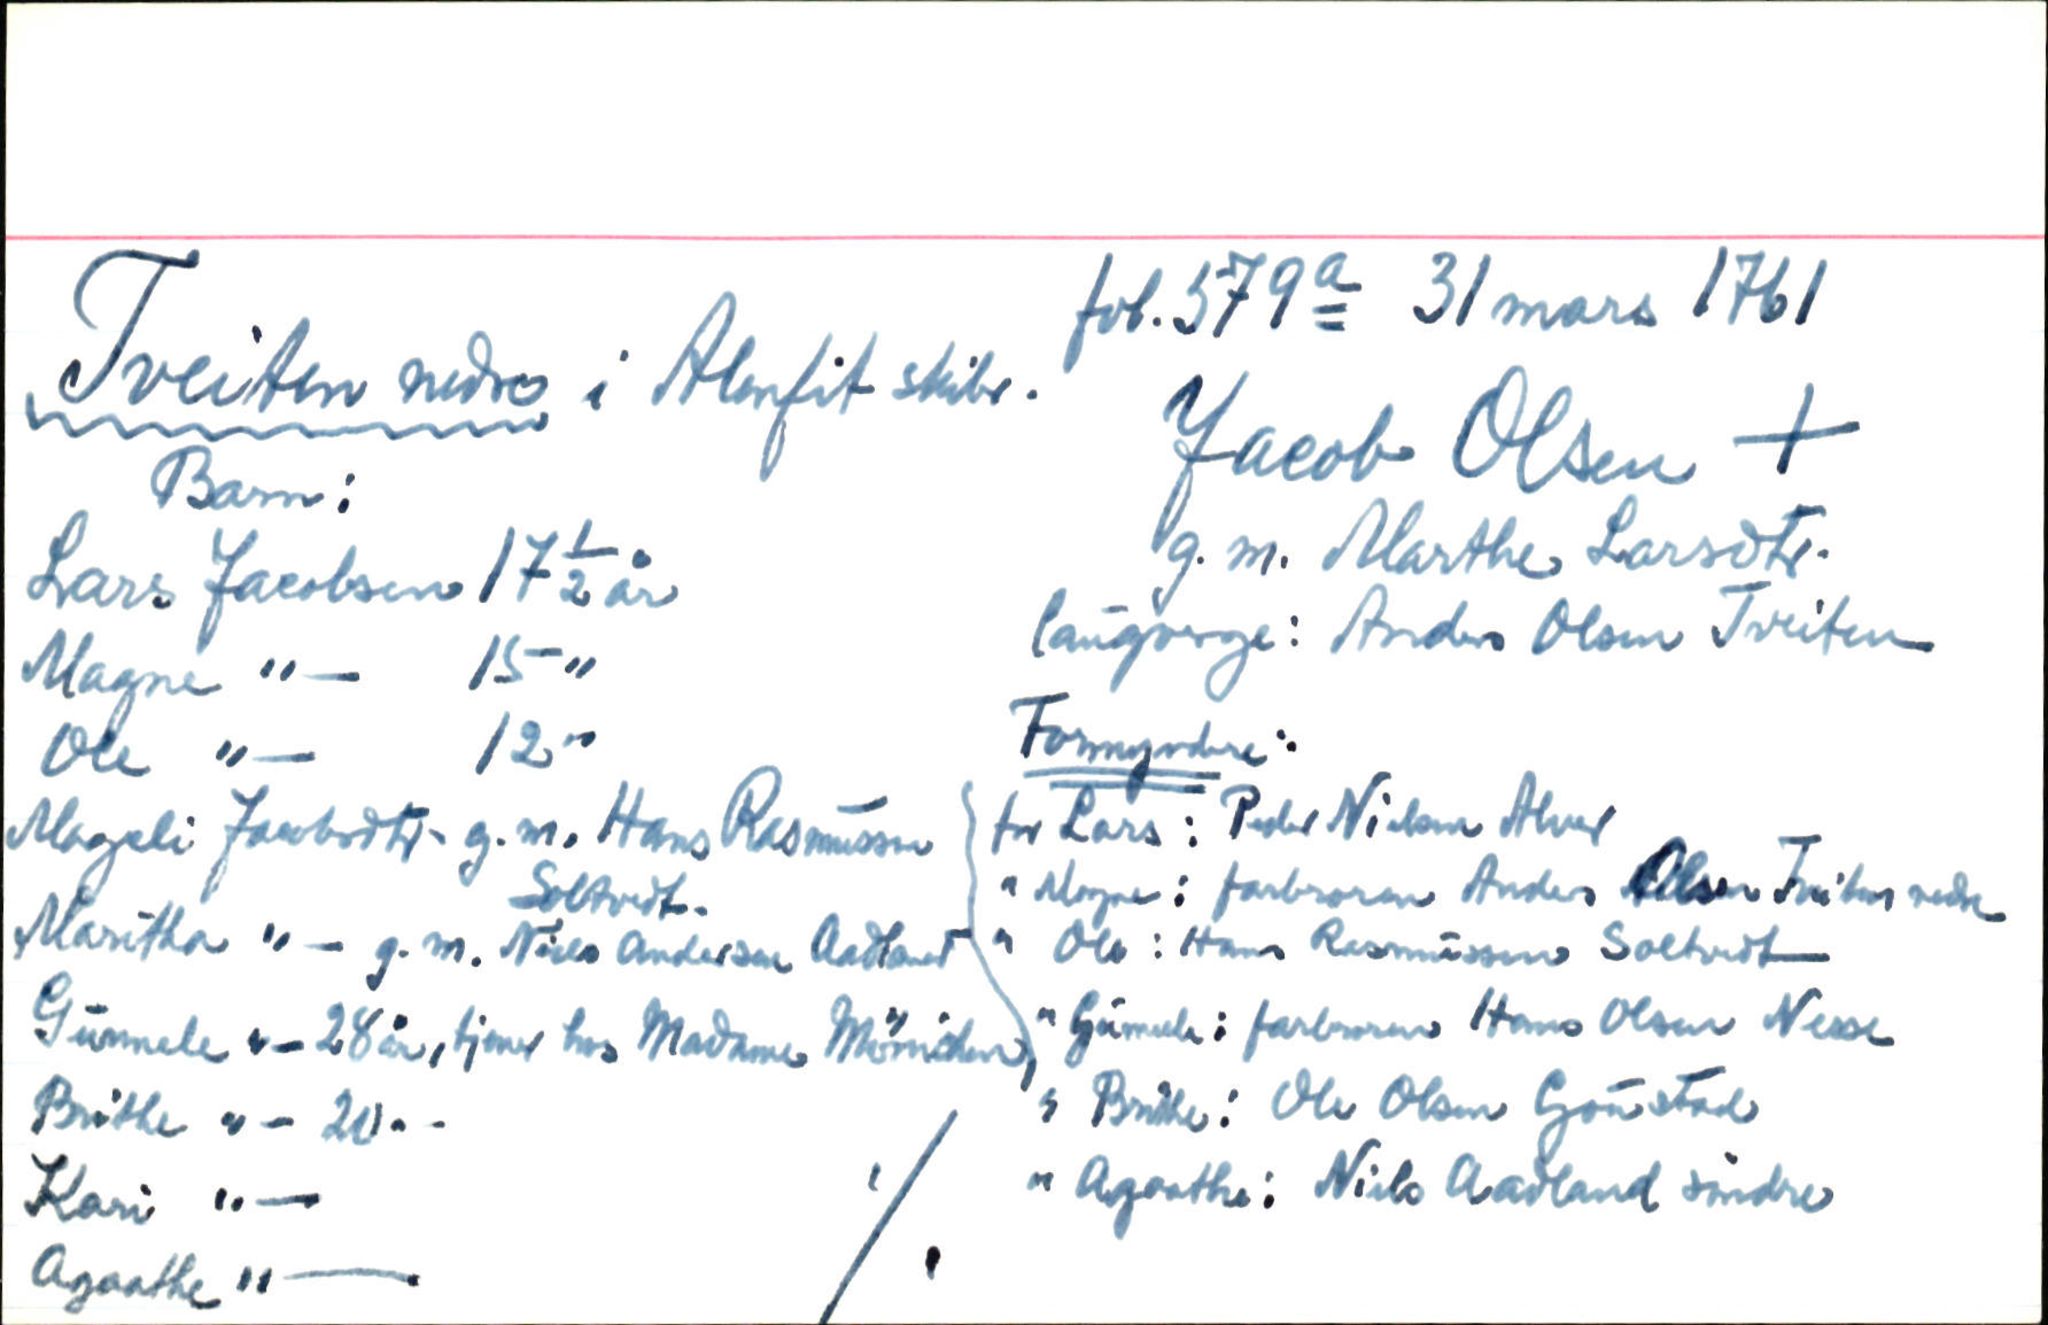 Tveiten nedre i Alenfit skibr.
Barn:
Lars Jacobsen 17 1/2 år
Magne "— 15 "
Ole "— 12 "
Mageli Jacobsdtr. g.m. Hans Rasmussen
Soltvedt.
Maritha "— g.m. Niels Andersen Aadland
Gunnele "— 28 år, tjener hos Madame Mönichen,
Brithe "— 20 "-
Kari "—
Agaathe "—
fol. 579a 31 mars 1761
Jacob Olsen +
g.m. Marthe Larsdtr.
laugverge: Anders Olsen Tveiten
Formyndere:
for Lars: Peder Nielsen Alver
" Magne: farbroren Anders Olsen Tveiten nedre
" Ole: Hans Rasmussen Soltvedt
" Gunnele: farbroren Hans Olsen Nesse
" Brithe: Ole Olsen Goustad
" Agaathe: Niels Aadland söndre